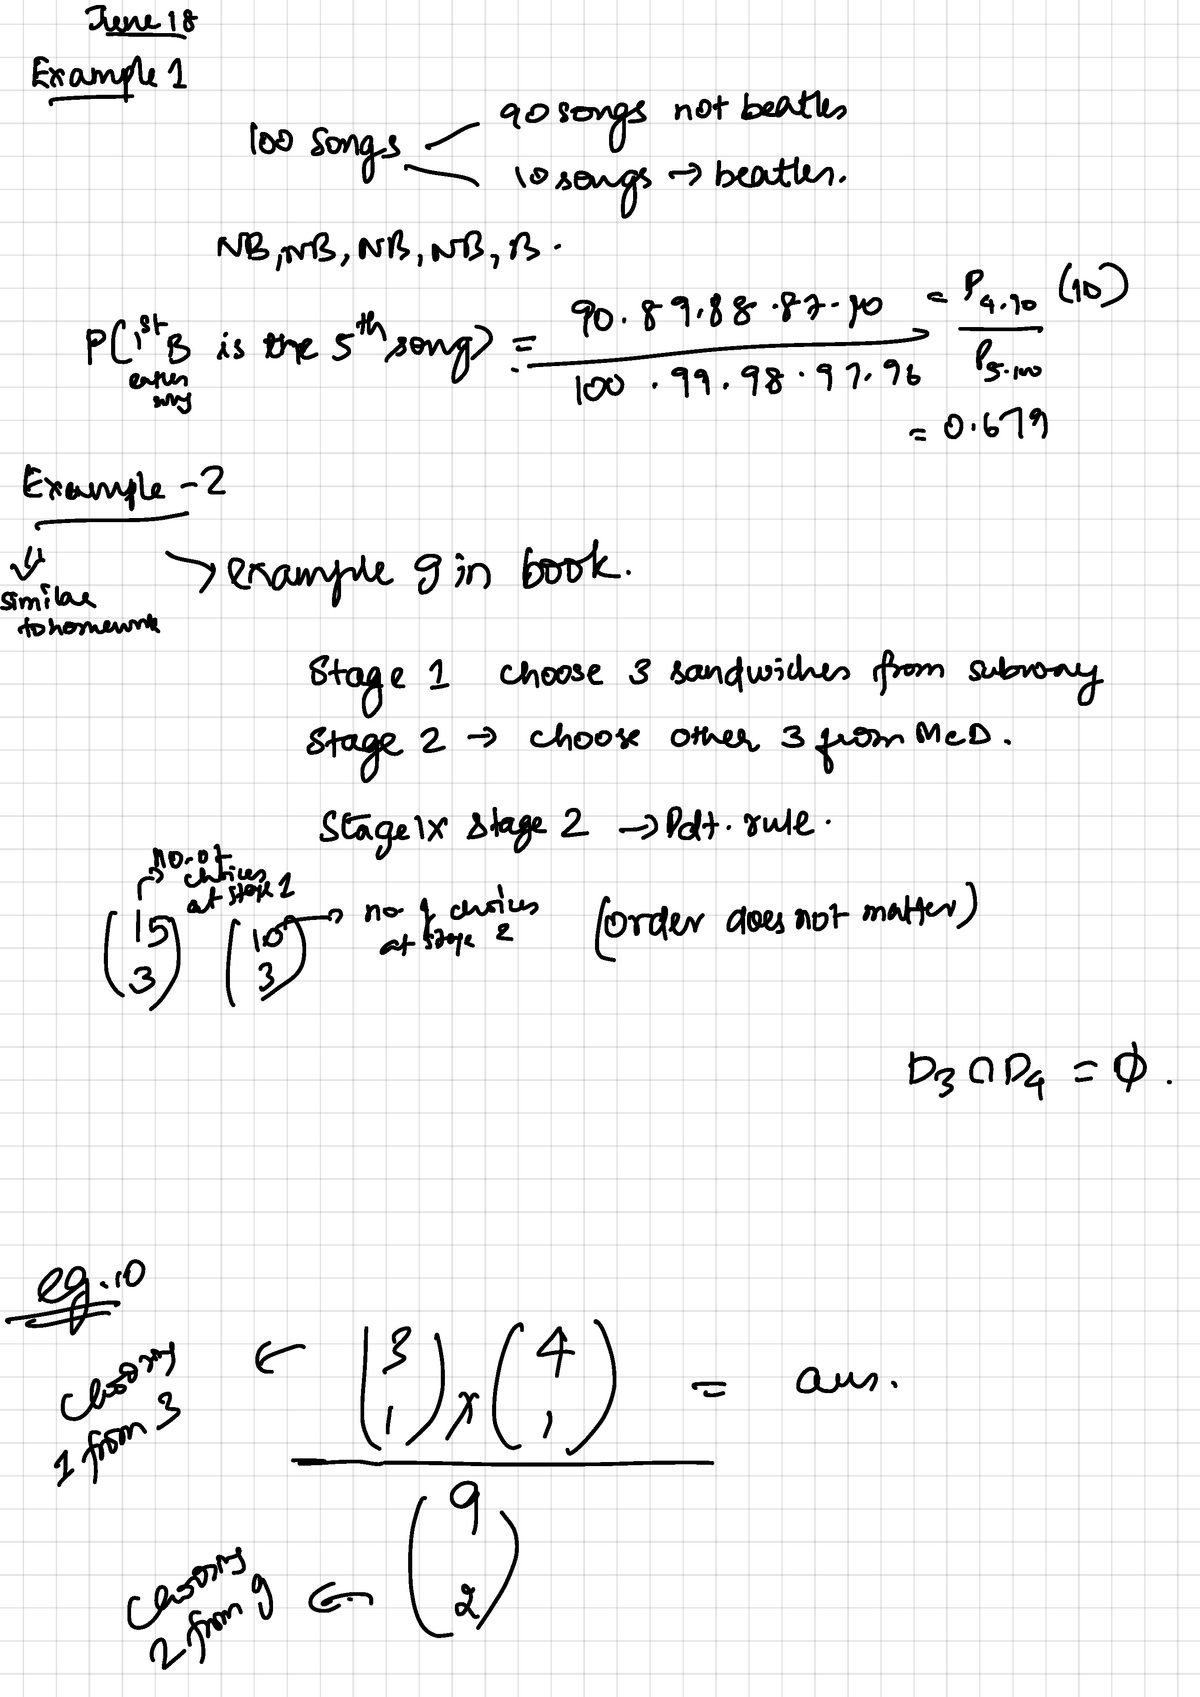 June 18
Example 1
100 songs
90 songs not beatles
10 songs → beatles.
NB, NB, NB, NB, B.
P(1st B is the 5th song) = 90.89.88.87.10 / 100.99.98.97.96 = P4,90 (10) / P5,100
song
= 0.679
Example - 2
similar to homework
→ example 9 in book.
Stage 1 choose 3 sandwiches from subway
Stage 2 → choose other 3 from McD.
Stage 1 x stage 2 → Pdt. rule.
(15 3) → no. of choices at stage 1
(10 3) → no of choices at stage 2
(order does not matter)
D3 ∩ D4 = ϕ.
eg. 10
choosing 1 from 3 ← (3 1) x (4 1) = ans.
choosing 2 from 9 ← (9 2)